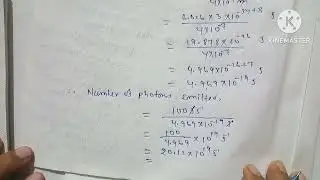 4×10⁻⁷
= 6.626×3×10⁻³⁴⁺⁸ J
4×10⁻⁷
= 19.878×10⁻²⁶ J
4×10⁻⁷
= 4.969×10⁻²⁶⁺⁷ J
= 4.969×10⁻¹⁹ J
∴ Number of photons emitted,
= 100 J s⁻¹
4.969×10⁻¹⁹ J
= 100 × 10¹⁹ s⁻¹
4.969
= 20.12×10¹⁹ s⁻¹
=
KINEMASTER